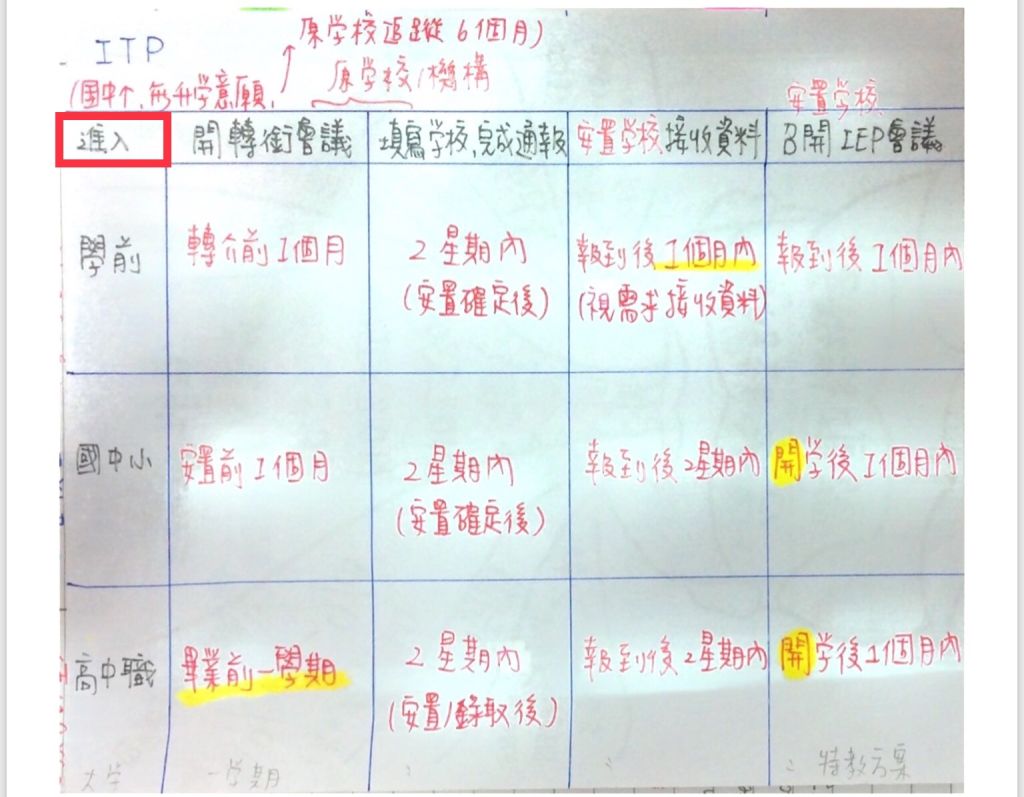 ITP
原学校追蹤6個月)
(國中↑,無升学意願,
原学校/機構
安置学校
進入 開轉銜會議 填寫学校,完成通報 安置学校接收資料 召開IEP會議
學前 轉介前1個月 2星期內 報到後1個月內 報到後1個月內
(安置確定後) (視需求接收資料)
國中小 安置前1個月 2星期內 報到後2星期內 開学後1個月內
(安置確定後)
高中職 畢業前一學期 2星期內 報到後2星期內 開学後1個月內
(安置/錄取後)
大学 一学期 特教方案